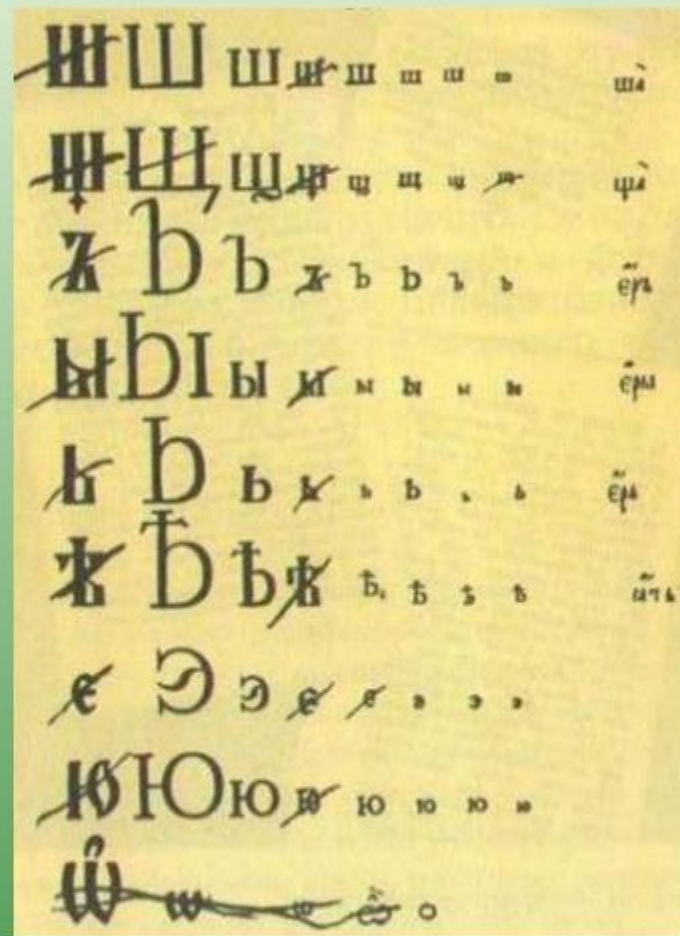 Ш Ш ш ш ш ш ш ш ша̀
Щ Щ щ щ щ щ щ щ щà
Ъ Ъ ъ ъ ъ ъ ъ ъ є҆́ръ
Ы Ы ы ы ы ы ы ы є҆ры̀
Ь Ь ь ь ь ь ь ь є҆́рь
Ѣ Ѣ ѣ ѣ ѣ ѣ ѣ ѣ ꙗ҆́ть
Є Э э є є э э э
Ю Ю ю ю ю ю ю ю
Ѽ ѡ ѡ ѽ о